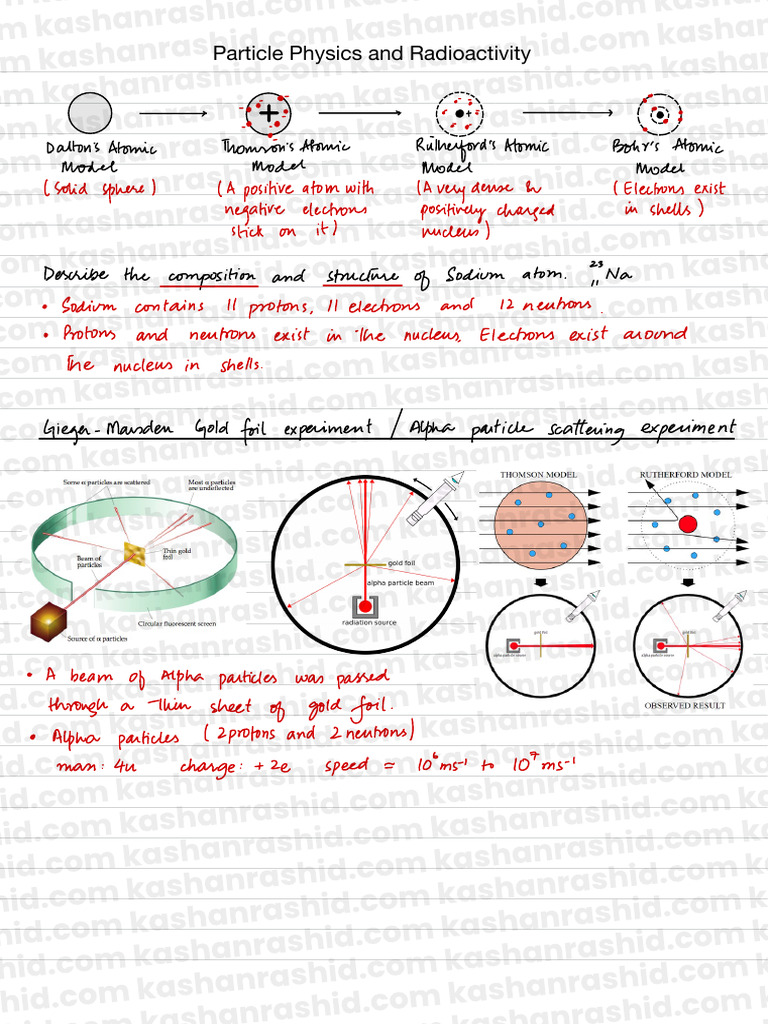 Particle Physics and Radioactivity
Dalton's Atomic Model
(Solid sphere)
Thomson's Atomic Model
(A positive atom with
negative electrons
stick on it)
Rutherford's Atomic Model
(A very dense &
positively charged
nucleus)
Bohr's Atomic Model
(Electrons exist
in shells)
Describe the composition and structure of Sodium atom. 23 11 Na
• Sodium contains 11 protons, 11 electrons and 12 neutrons.
• Protons and neutrons exist in the nucleus, Electrons exist around
the nucleus in shells.
Gieger-Marsden Gold foil experiment / Alpha particle scattering experiment
Some α particles are scattered
Most α particles
are undeflected
Beam of
particles
Thin gold
foil
Circular fluorescent screen
Source of α particles
gold foil
alpha particle beam
radiation source
THOMSON MODEL
RUTHERFORD MODEL
gold foil
alpha particle source
gold foil
alpha particle source
OBSERVED RESULT
• A beam of Alpha particles was passed
through a thin sheet of gold foil.
• Alpha particles (2 protons and 2 neutrons)
mass: 4u charge: +2e speed ≈ 10⁶ ms⁻¹ to 10⁷ ms⁻¹
kashanrashid.com